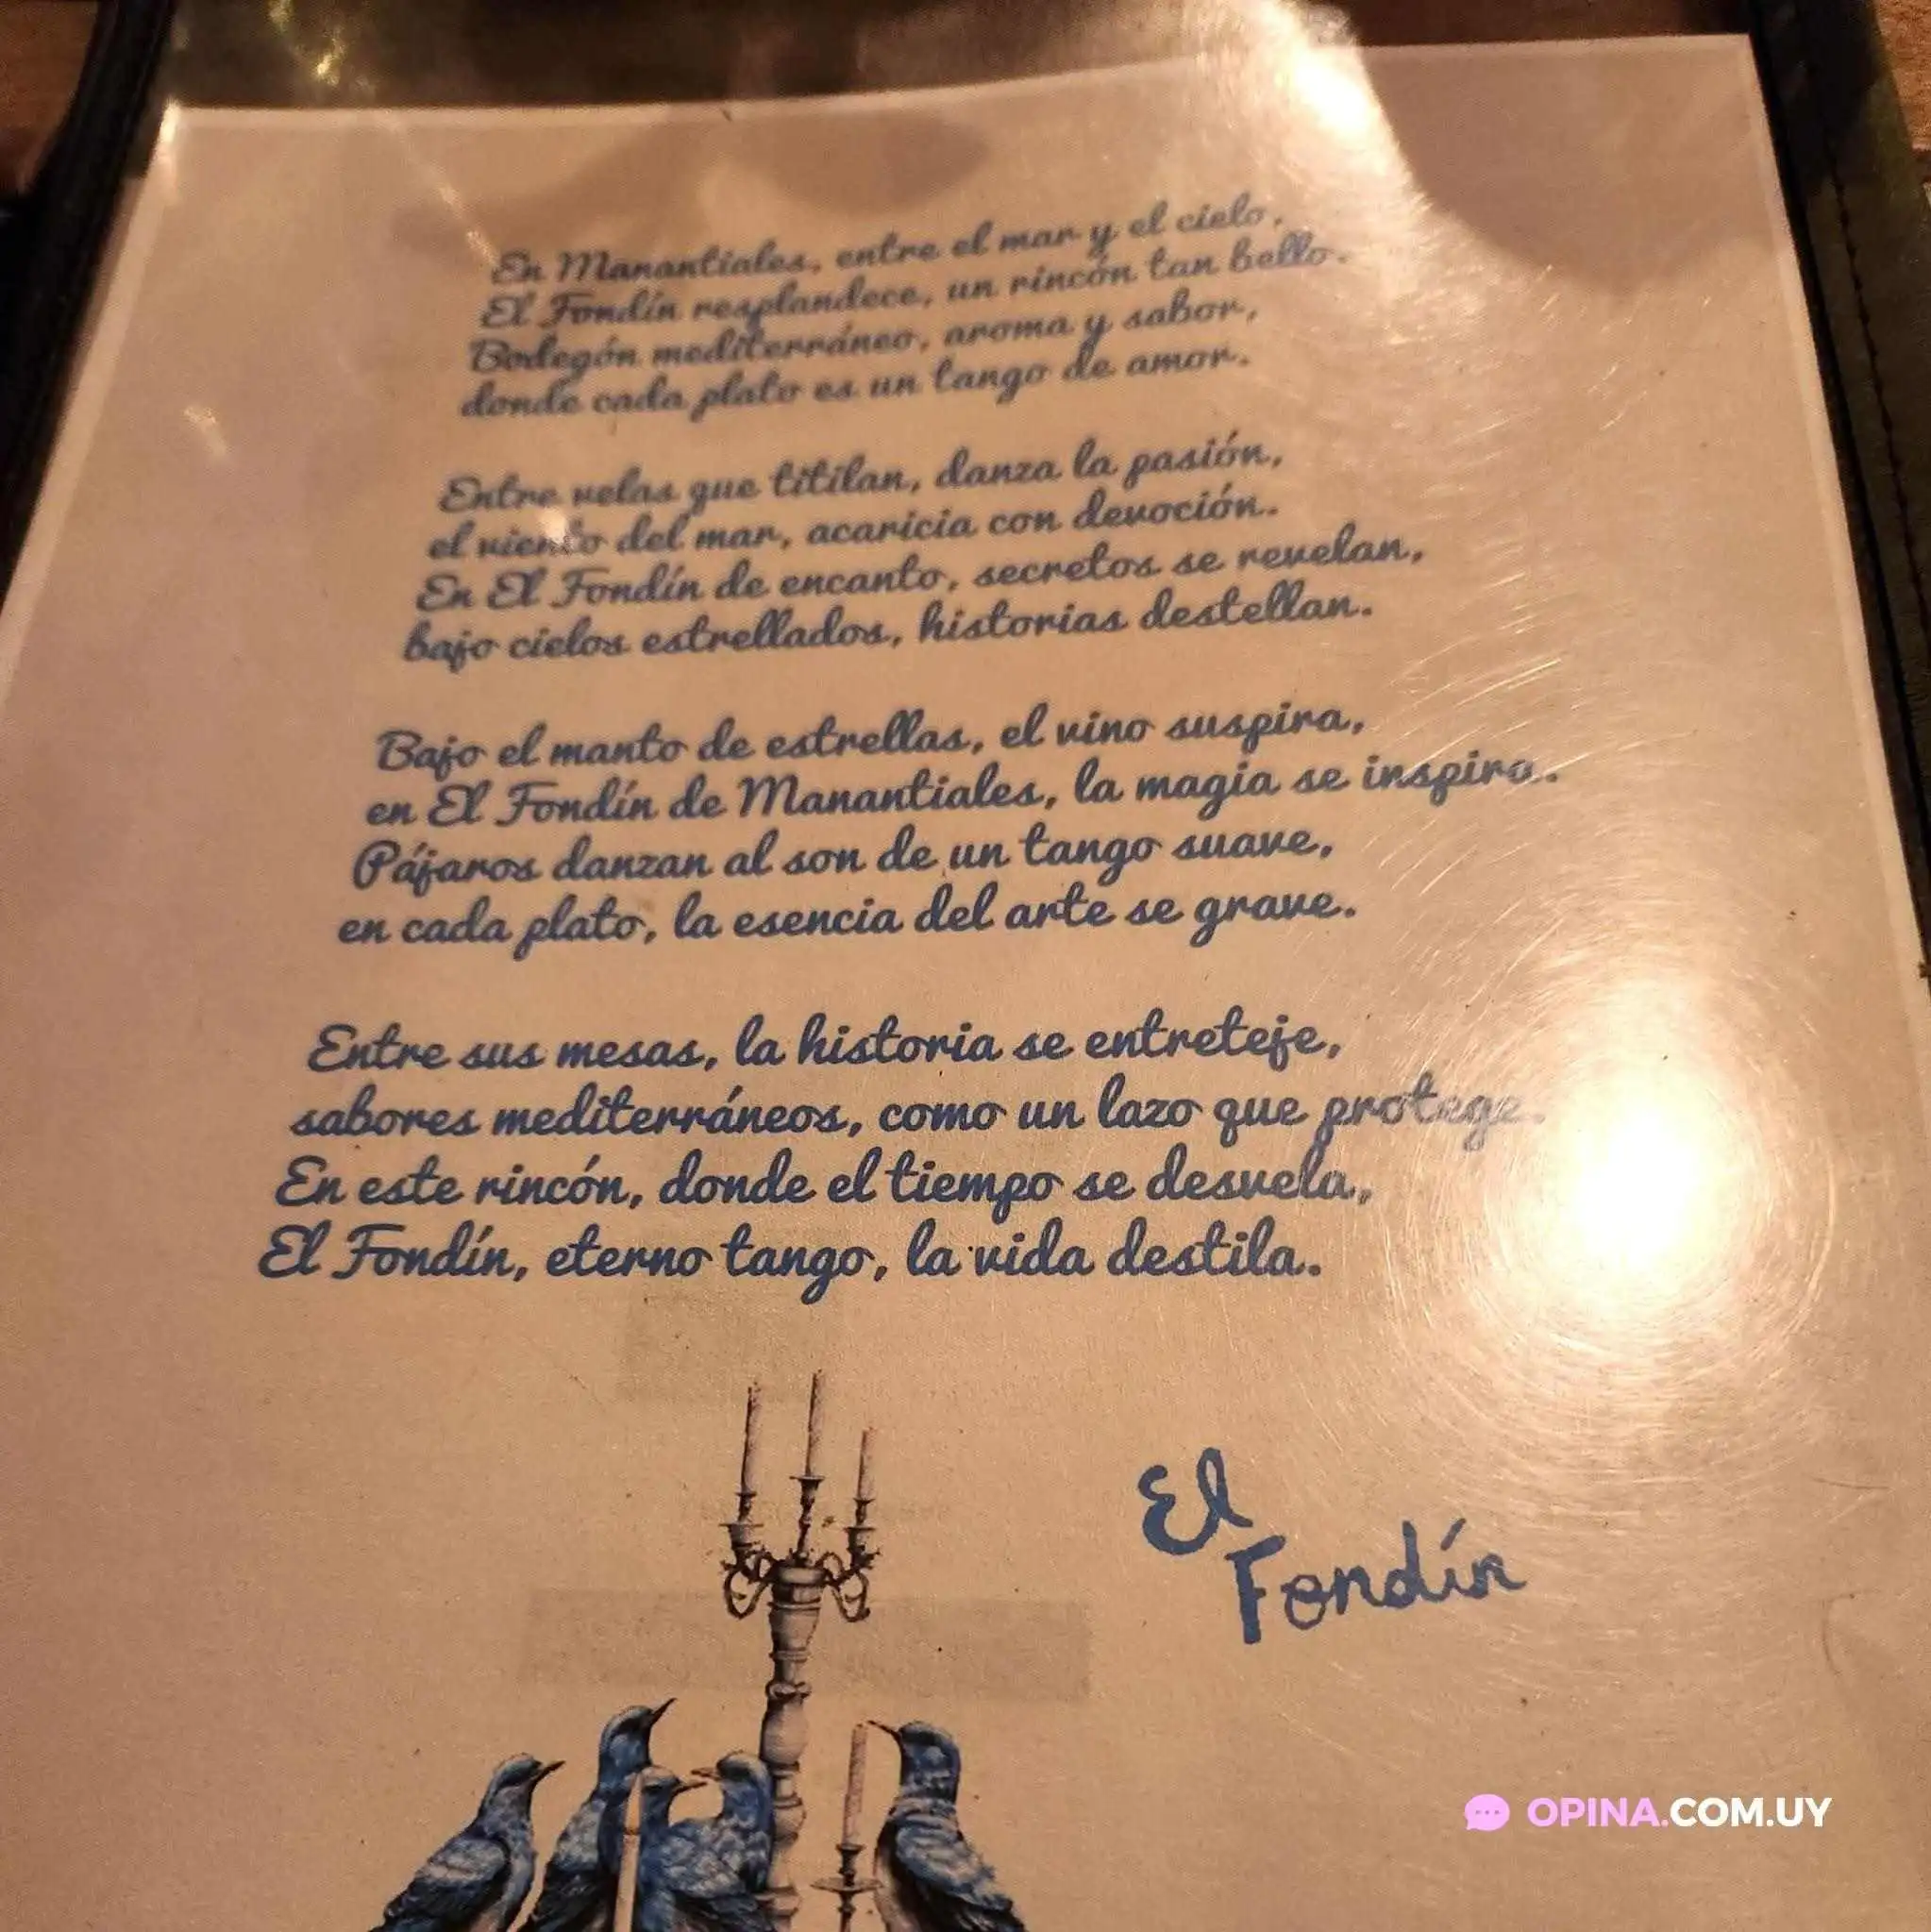 En Manantiales, entre el mar y el cielo,
El Fondín resplandece, un rincón tan bello.
Bodegón mediterráneo, aroma y sabor,
donde cada plato es un tango de amor.
Entre velas que titilan, danza la pasión,
el viento del mar, acaricia con devoción.
En El Fondín de encanto, secretos se revelan,
bajo cielos estrellados, historias destellan.
Bajo el manto de estrellas, el vino suspira,
en El Fondín de Manantiales, la magia se inspira.
Pájaros danzan al son de un tango suave,
en cada plato, la esencia del arte se grave.
Entre sus mesas, la historia se entreteje,
sabores mediterráneos, como un lazo que protege.
En este rincón, donde el tiempo se desvela,
El Fondín, eterno tango, la vida destila.
El
Fondín
OPINA.COM.UY